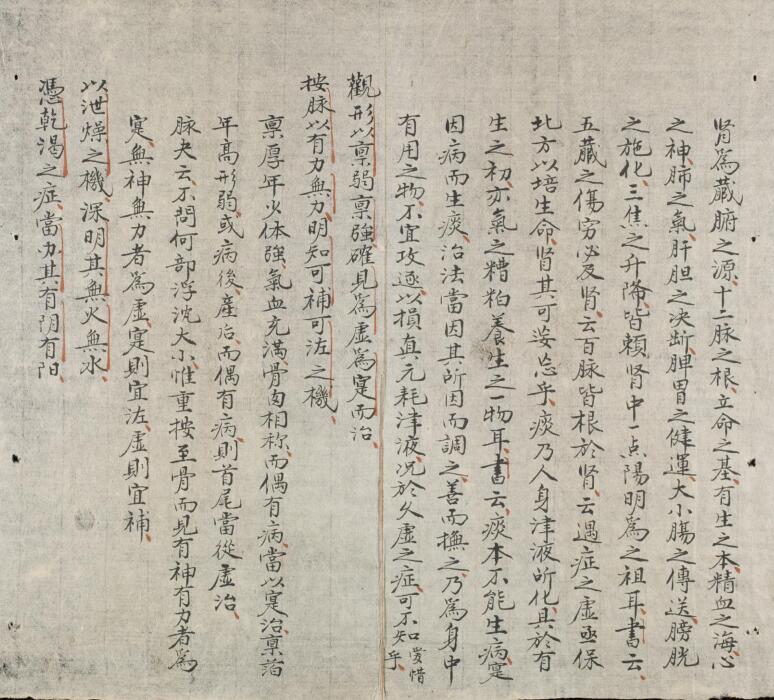 肾爲臟腑之源、十二脉之根、立命之基、有生之本、精血之海、心
之神、肺之氣、肝胆之决断、脾胃之健運、大小腸之傳送、膀胱
之施化、三焦之升降、皆頼肾中一点陽明爲之祖耳、書云、
五臟之傷、穷必及肾、云百脉皆根於肾、云遇症之虚、亟保
北方、以培生命、肾其可妄忽乎、痰乃人身津液所化、具於有
生之初、亦氣之糟粕、養生之一物耳、書云、痰本不能生病、寔
因病而生痰、治法當因其所因而調之、善而撫之、乃爲身中
有用之物、不宜攻逐以損真元、耗津液、况於久虚之症、可不知愛惜乎
觀形以禀弱禀強、確見爲虚爲寔而治、
按脉以有力無力、明知可補可泻之機、
禀厚年少、体強、氣血充满、骨肉相称、而偶有病、當以寔治、禀萡
年高形弱、或病後、產后、而偶有病、則首尾當從虚治、
脉夬云、不問何部浮沈大小、惟重按至骨而見有神有力者爲
寔、無神無力者爲虚、寔則宜泻、虚則宜補、
以泄燥之機、深明其無火無水、
憑乾渴之症、當办其有阴有阳、